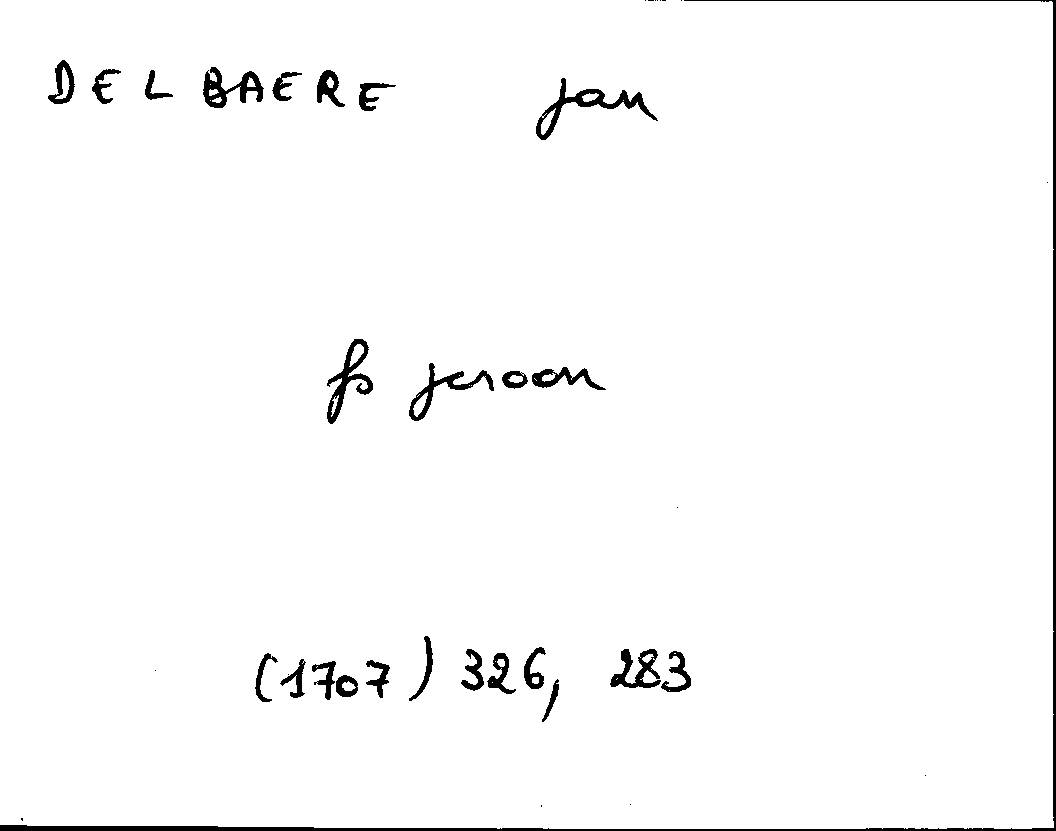 DELBAERE jan
fs jeroon
(1707) 326, 283